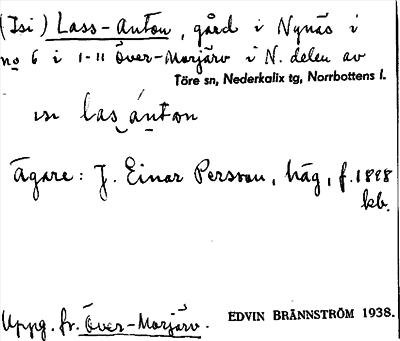 (Isi) Lass-Anton, gård i Nynäs i
no 6 i 1-11 Över-Morjärv i N. delen av
Töre sn, Nederkalix tg, Norrbottens l.
ısı las ánton
Ägare: J. Einar Persson, häg, f. 1898
kb.
Uppg. fr. Över-Morjärv.
EDVIN BRÄNNSTRÖM 1938.